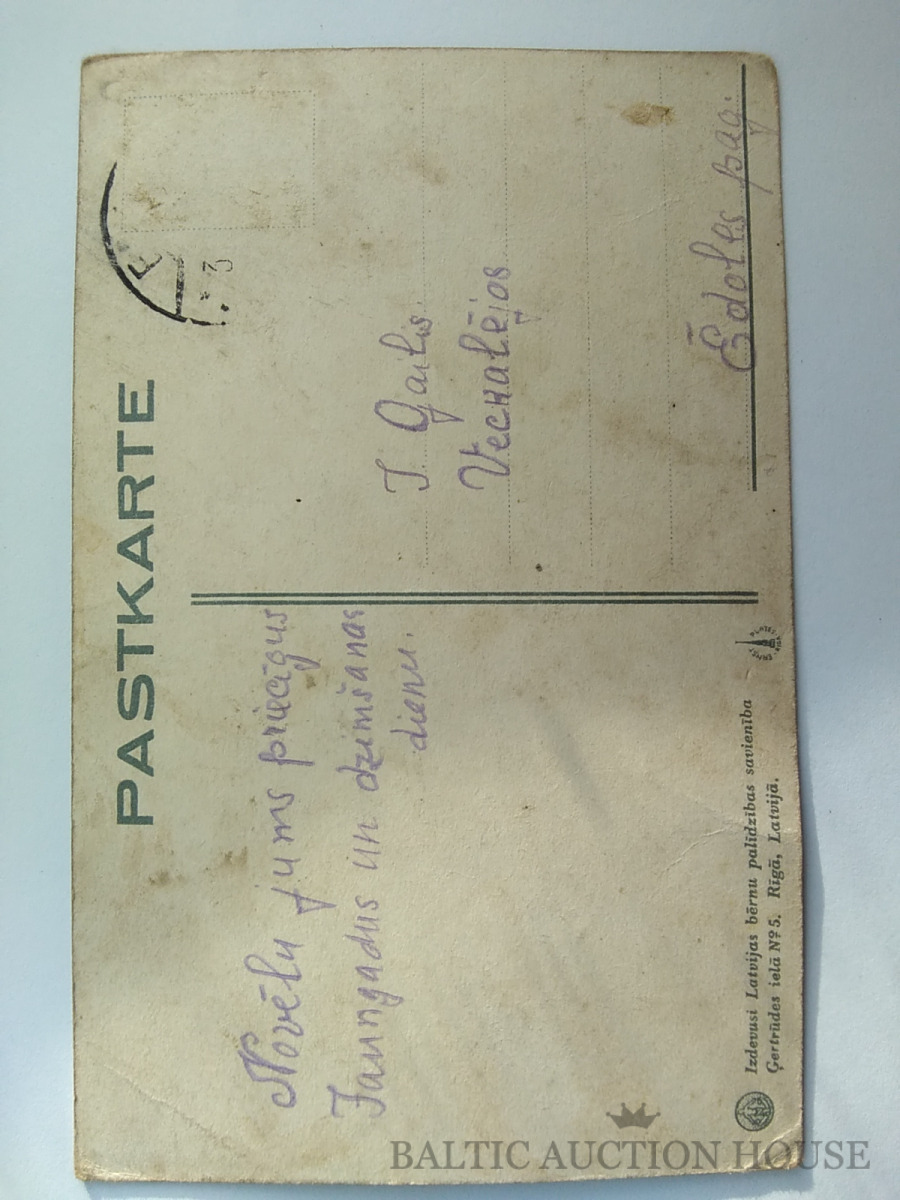 PASTKARTE
Novēlu jums priecīgus
Jaungadus un dzimšanas
dienu.
J. Gailis.
Veckalējos
Ēdoles pag.
Izdevusi Latvijas bērnu palīdzības savienība
Ģertrūdes ielā № 5. Rīgā, Latvijā.
BALTIC AUCTION HOUSE